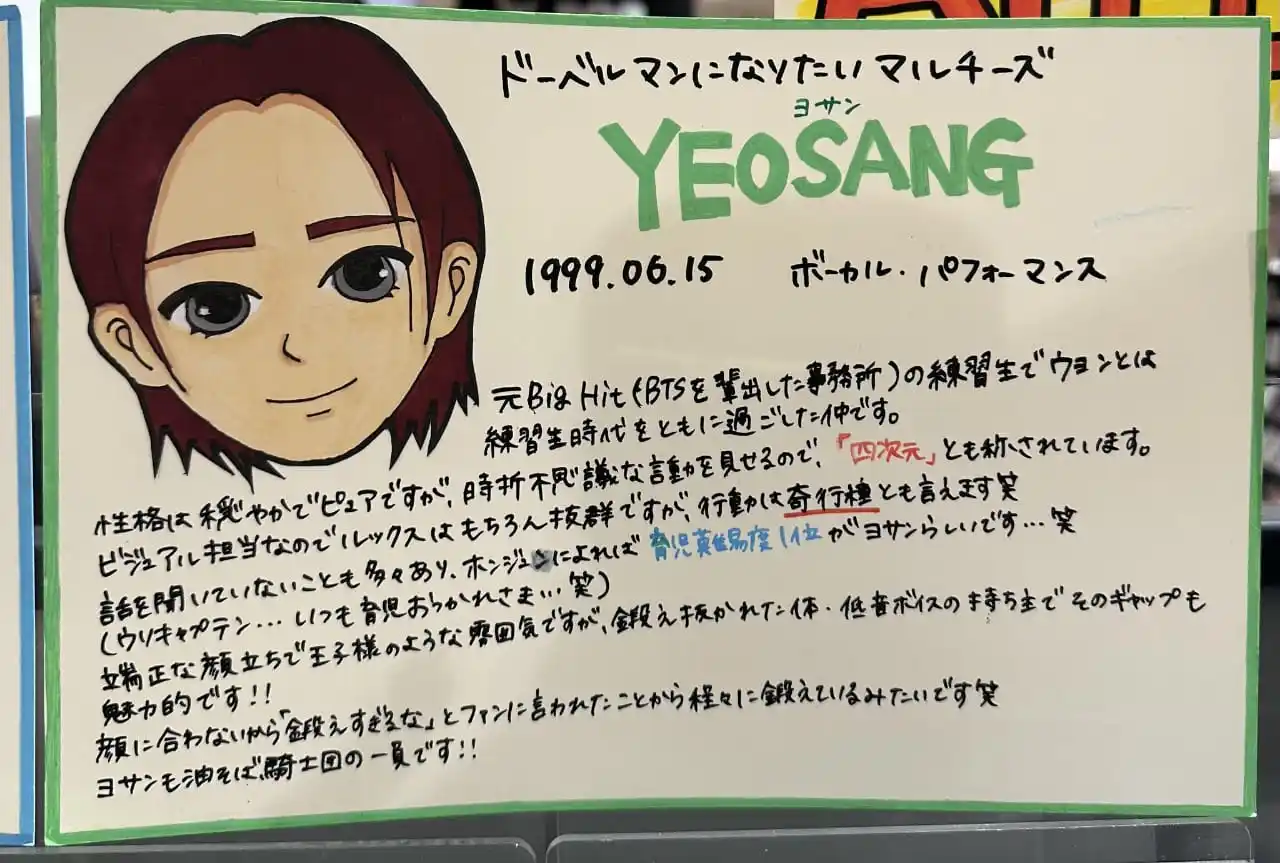 ドーベルマンになりたいマルチーズ
ヨサン
YEOSANG
1999.06.15 ボーカル・パフォーマンス
元Big Hit(BTSを輩出した事務所)の練習生でウヨンとは
練習生時代をともに過ごした仲です。
性格は穏やかでピュアですが、時折不思議な言動を見せるので、「四次元」とも称されています。
ビジュアル担当なのでルックスはもちろん抜群ですが、行動は奇行種とも言えます笑
話を聞いていないことも多々あり、ホンジュンによれば育児難易度1位がヨサンらしいです…笑
(ウリキャプテン…いつも育児おつかれさま…笑)
端正な顔立ちで王子様のような雰囲気ですが、鍛え抜かれた体・低音ボイスの持ち主でそのギャップも
魅力的です!!
顔に合わないから「鍛えすぎるな」とファンに言われたことから程々に鍛えているみたいです笑
ヨサンも油そば騎士団の一員です!!